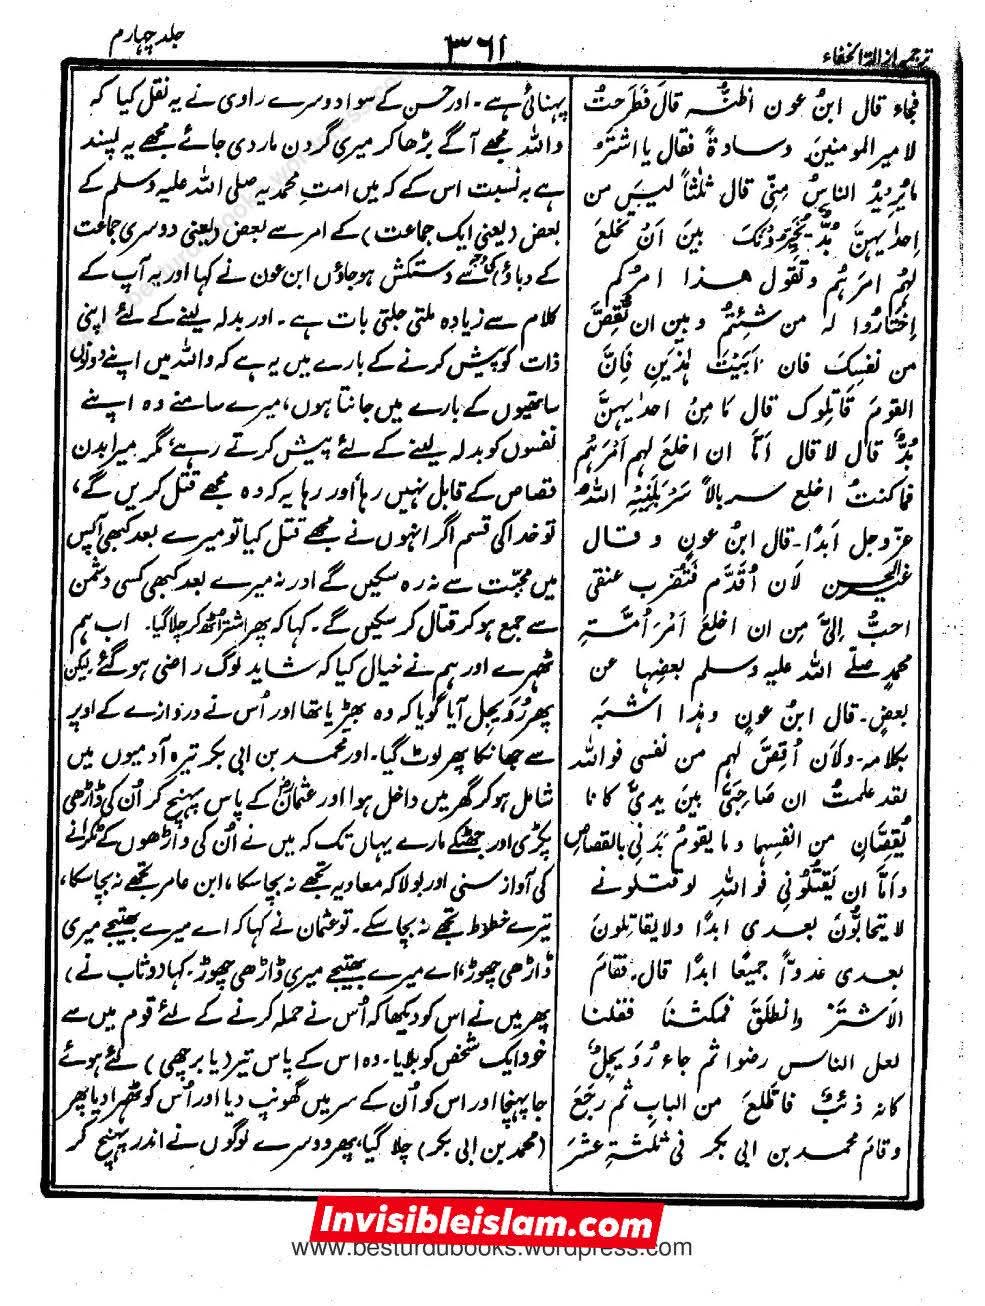 ترجمہ ازالۃ الخفاء
۳۶۱
جلد چہارم
فجاء قال ابنُ عون اظنُّہ قالَ فَطَرحتُ
لامیر المومنین وسادةً فقال یا اشترُ
مایُریدُ الناسُ مِنّی قال ثلٰثاً لیسَ من
اِحدٰیہنَّ بُدٌّ یُخَیِّرُونَکَ بین اَنْ تخلعَ
لہُم امرَہُم وتقولَ ھٰذا امرُکم
اِختارُوا لہ من شِئتُم وبین ان تُقِصَّ
من نفسِکَ فان اَبَیْتَ ہٰذَینِ فَاِنَّ
القومَ قَاتِلوکَ قال مَا مِنْ احدٰیہنَّ
بُدٌّ قال لا قال اَمَّا ان اخلعَ لہم اَمْرَہُم
فماکنتُ اخلع سربالاً سَرْبَلَنِیْہِ اللہُ
عزوجل اَبدًا۔ قال ابنُ عونٍ وقال
غیرُ الحسن لَاَن اُقَدَّمَ فَتُضرَب عنقی
احبُّ اِلیَّ مِن ان اخلعَ اَمْرَ اُمَّۃِ
محمدٍ صلے اللہ علیہ وسلم بعضِہا عن
بعضٍ۔ قال ابنُ عونٍ وہٰذا اشبَہ
بکلامہ۔ ولَاَن اُقِصَّ لہم من نفسی فواللہ
لقد علمتُ ان صَاحِبَیَّ بینَ یدیَّ کانا
یُقِصَّانِ من انفسِہما ومایقومُ بَدَنِی بالقصاصِ
واَمَّا ان یَقتُلُونِی فَواللہِ لوقتلونے
لایتحابُّونَ بعدی ابدًا ولایقاتلونَ
بعدی عدوّاً جمیعًا ابدًا قال۔ فقامَ
الاَشترُ وانطلَقَ فمکثنَا فقلنا
لعل الناس رضوا ثم جاء رُوَیجِلٌ
کانہ ذئبٌ فاطَّلعَ من البابِ ثم رجَعَ
وقامَ محمد بن ابی بکر فی ثلٰثۃِ عشرَ
پہنائی ہے۔ اور حسن کے سوا دوسرے راوی نے یہ نقل کیا کہ
واللہ مجھے آگے بڑھا کر میری گردن مار دی جائے مجھے یہ پسند
ہے بہ نسبت اس کے کہ میں امتِ محمدیہ صلی اللہ علیہ وسلم کے
بعض (یعنی ایک جماعت) کے امر سے بعض (یعنی دوسری جماعت
کے دباؤ) کی وجہ سے دستکش ہوجاؤں ابن عون نے کہا اور یہ آپ کے
کلام سے زیادہ ملتی جلتی بات ہے۔ اور بدلہ لینے کے لئے اپنی
ذات کو پیش کرنے کے بارے میں یہ ہے کہ واللہ میں اپنے دونوں
ساتھیوں کے بارے میں جانتا ہوں، میرے سامنے وہ اپنے
نفسوں کو بدلہ لینے کے لئے پیش کرتے رہے، مگر میرا بدن
قصاص کے قابل نہیں رہا، اور رہا یہ کہ وہ مجھے قتل کریں گے،
تو خدا کی قسم اگر انہوں نے مجھے قتل کیا تو میرے بعد کبھی آپس
میں محبت سے نہ رہ سکیں گے اور نہ میرے بعد کبھی کسی دشمن
سے جمع ہو کر قتال کر سکیں گے۔ کہا کہ پھر اشتر اُٹھ کر چلا گیا۔ اب ہم
ٹھہرے اور ہم نے خیال کیا کہ شاید لوگ راضی ہوگئے لیکن
پھر رُوَیجِل آیا گویا کہ وہ بھیڑیا تھا اور اُس نے دروازے کے اوپر
سے جھانکا پھر لوٹ گیا۔ اور محمد بن ابی بکر تیرہ آدمیوں میں
شامل ہو کر گھر میں داخل ہوا اور عثمانؓ کے پاس پہنچ کر اُن کی ڈاڑھی
پکڑی اور جھٹکے مارے یہاں تک کہ میں نے اُن کی داڑھوں کے ٹکرانے
کی آواز سنی اور بولا کہ معاویہ تجھے نہ بچا سکا، ابن عامر تجھے نہ بچا سکا،
تیرے خطوط تجھے نہ بچا سکے۔ تو عثمان نے کہا کہ اے میرے بھتیجے میری
ڈاڑھی چھوڑ، اے میرے بھتیجے میری ڈاڑھی چھوڑ۔ کہا (وثاب نے)
پھر میں نے اس کو دیکھا کہ اُس نے حملہ کرنے کے لئے قوم میں سے
خود ایک شخص کو بلایا۔ وہ اس کے پاس تیر (یا برچھی) لئے ہوئے
جا پہنچا اور اس کو اُن کے سر میں گھونپ دیا اور اُس کو ٹھہرا دیا پھر
(محمد بن ابی بکر) چلا گیا، پھر دوسرے لوگوں نے اندر پہنچ کر
Invisibleislam.com
www.besturdubooks.wordpress.com